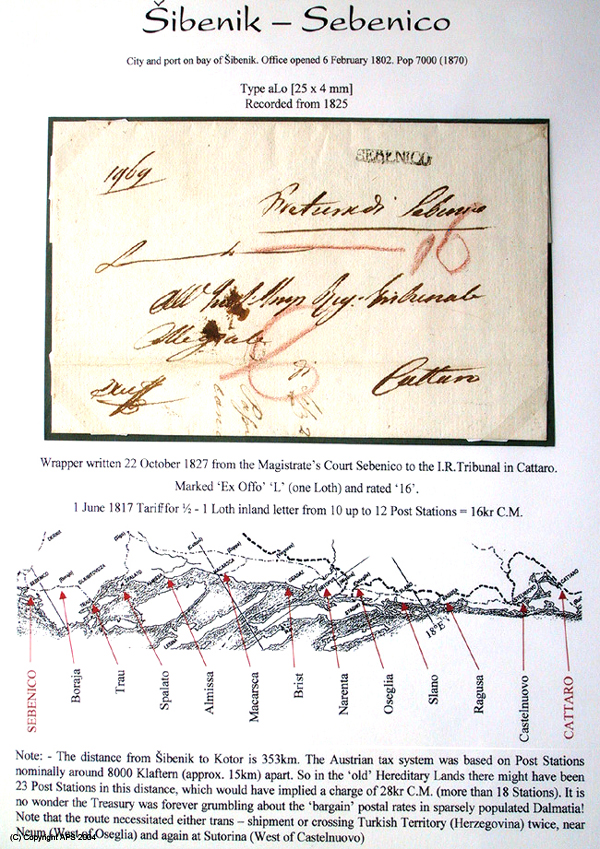 Šibenik – Sebenico
City and port on bay of Šibenik. Office opened 6 February 1802. Pop 7000 (1870)
Type aLo [25 x 4 mm]
Recorded from 1825
SEBENICO
1969
Pretura di Sebenico
16
L
Tribunale
Cattaro
Wrapper written 22 October 1827 from the Magistrate's Court Sebenico to the I.R.Tribunal in Cattaro.
Marked 'Ex Offo' 'L' (one Loth) and rated '16'.
1 June 1817 Tariff for ½ - 1 Loth inland letter from 10 up to 12 Post Stations = 16kr C.M.
18°E
SEBENICO
Boraja
Trau
Spalato
Almissa
Macarsca
Brist
Narenta
Oseglia
Slano
Ragusa
Castelnuovo
CATTARO
Note: - The distance from Šibenik to Kotor is 353km. The Austrian tax system was based on Post Stations
nominally around 8000 Klaftern (approx. 15km) apart. So in the 'old' Hereditary Lands there might have been
23 Post Stations in this distance, which would have implied a charge of 28kr C.M. (more than 18 Stations). It is
no wonder the Treasury was forever grumbling about the 'bargain' postal rates in sparsely populated Dalmatia!
Note that the route necessitated either trans – shipment or crossing Turkish Territory (Herzegovina) twice, near
Neum (West of Oseglia) and again at Sutorina (West of Castelnuovo)
(C) Copyright APS 2004